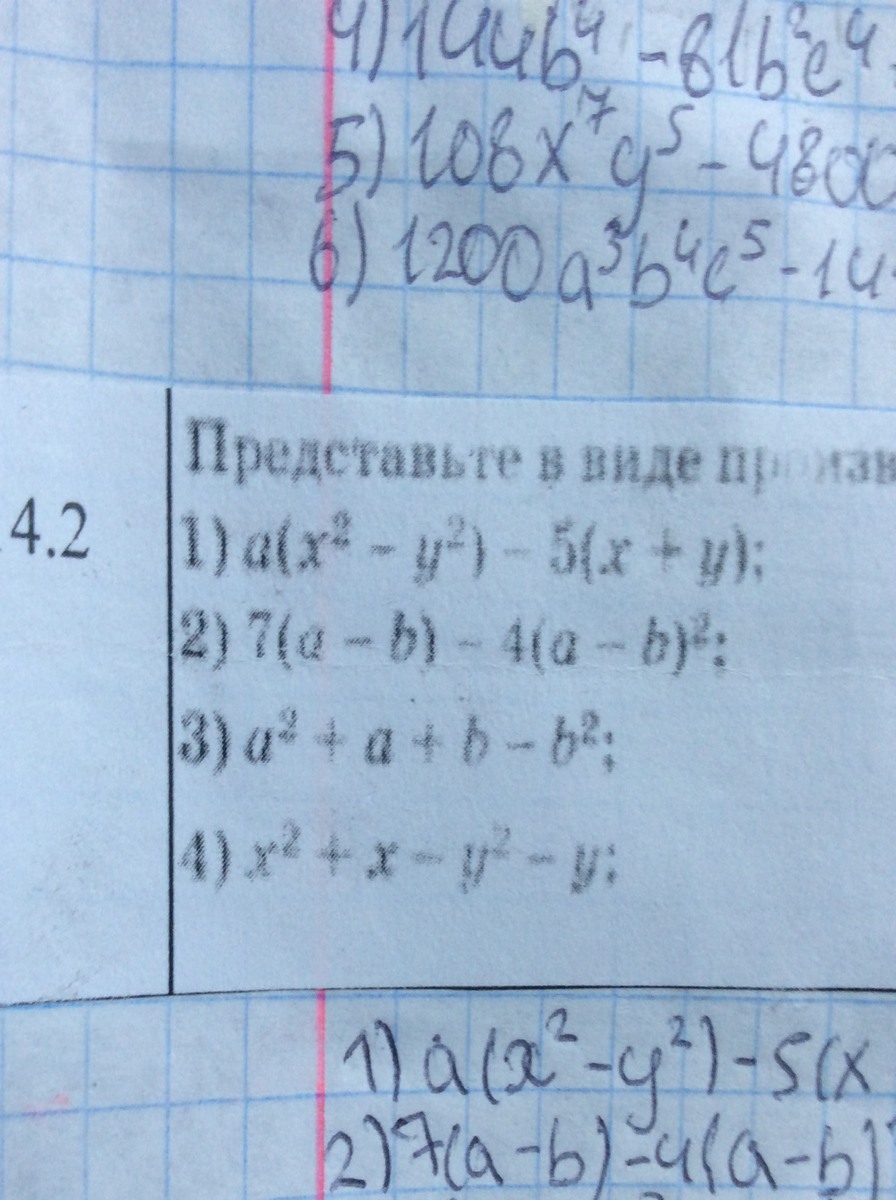 4) 144b⁴ - 81b²c⁴
5) 108x⁷y⁵ - 4800
6) 1200a³b⁴c⁵ - 14
4.2
Представьте в виде произв
1) a(x² − y²) − 5(x + y);
2) 7(a − b) − 4(a − b)²;
3) a² + a + b − b²;
4) x² + x − y² − y;
1) a(x² - y²) - 5(x
2) 7(a - b) - 4(a - b)